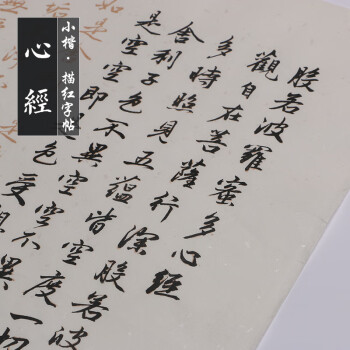 心經
小楷·描红字帖
般若波羅蜜多心經
觀自在菩薩行深般若波
多時照見五蘊皆空度一切
舍利子色不異空空不異
是空空即是色受想